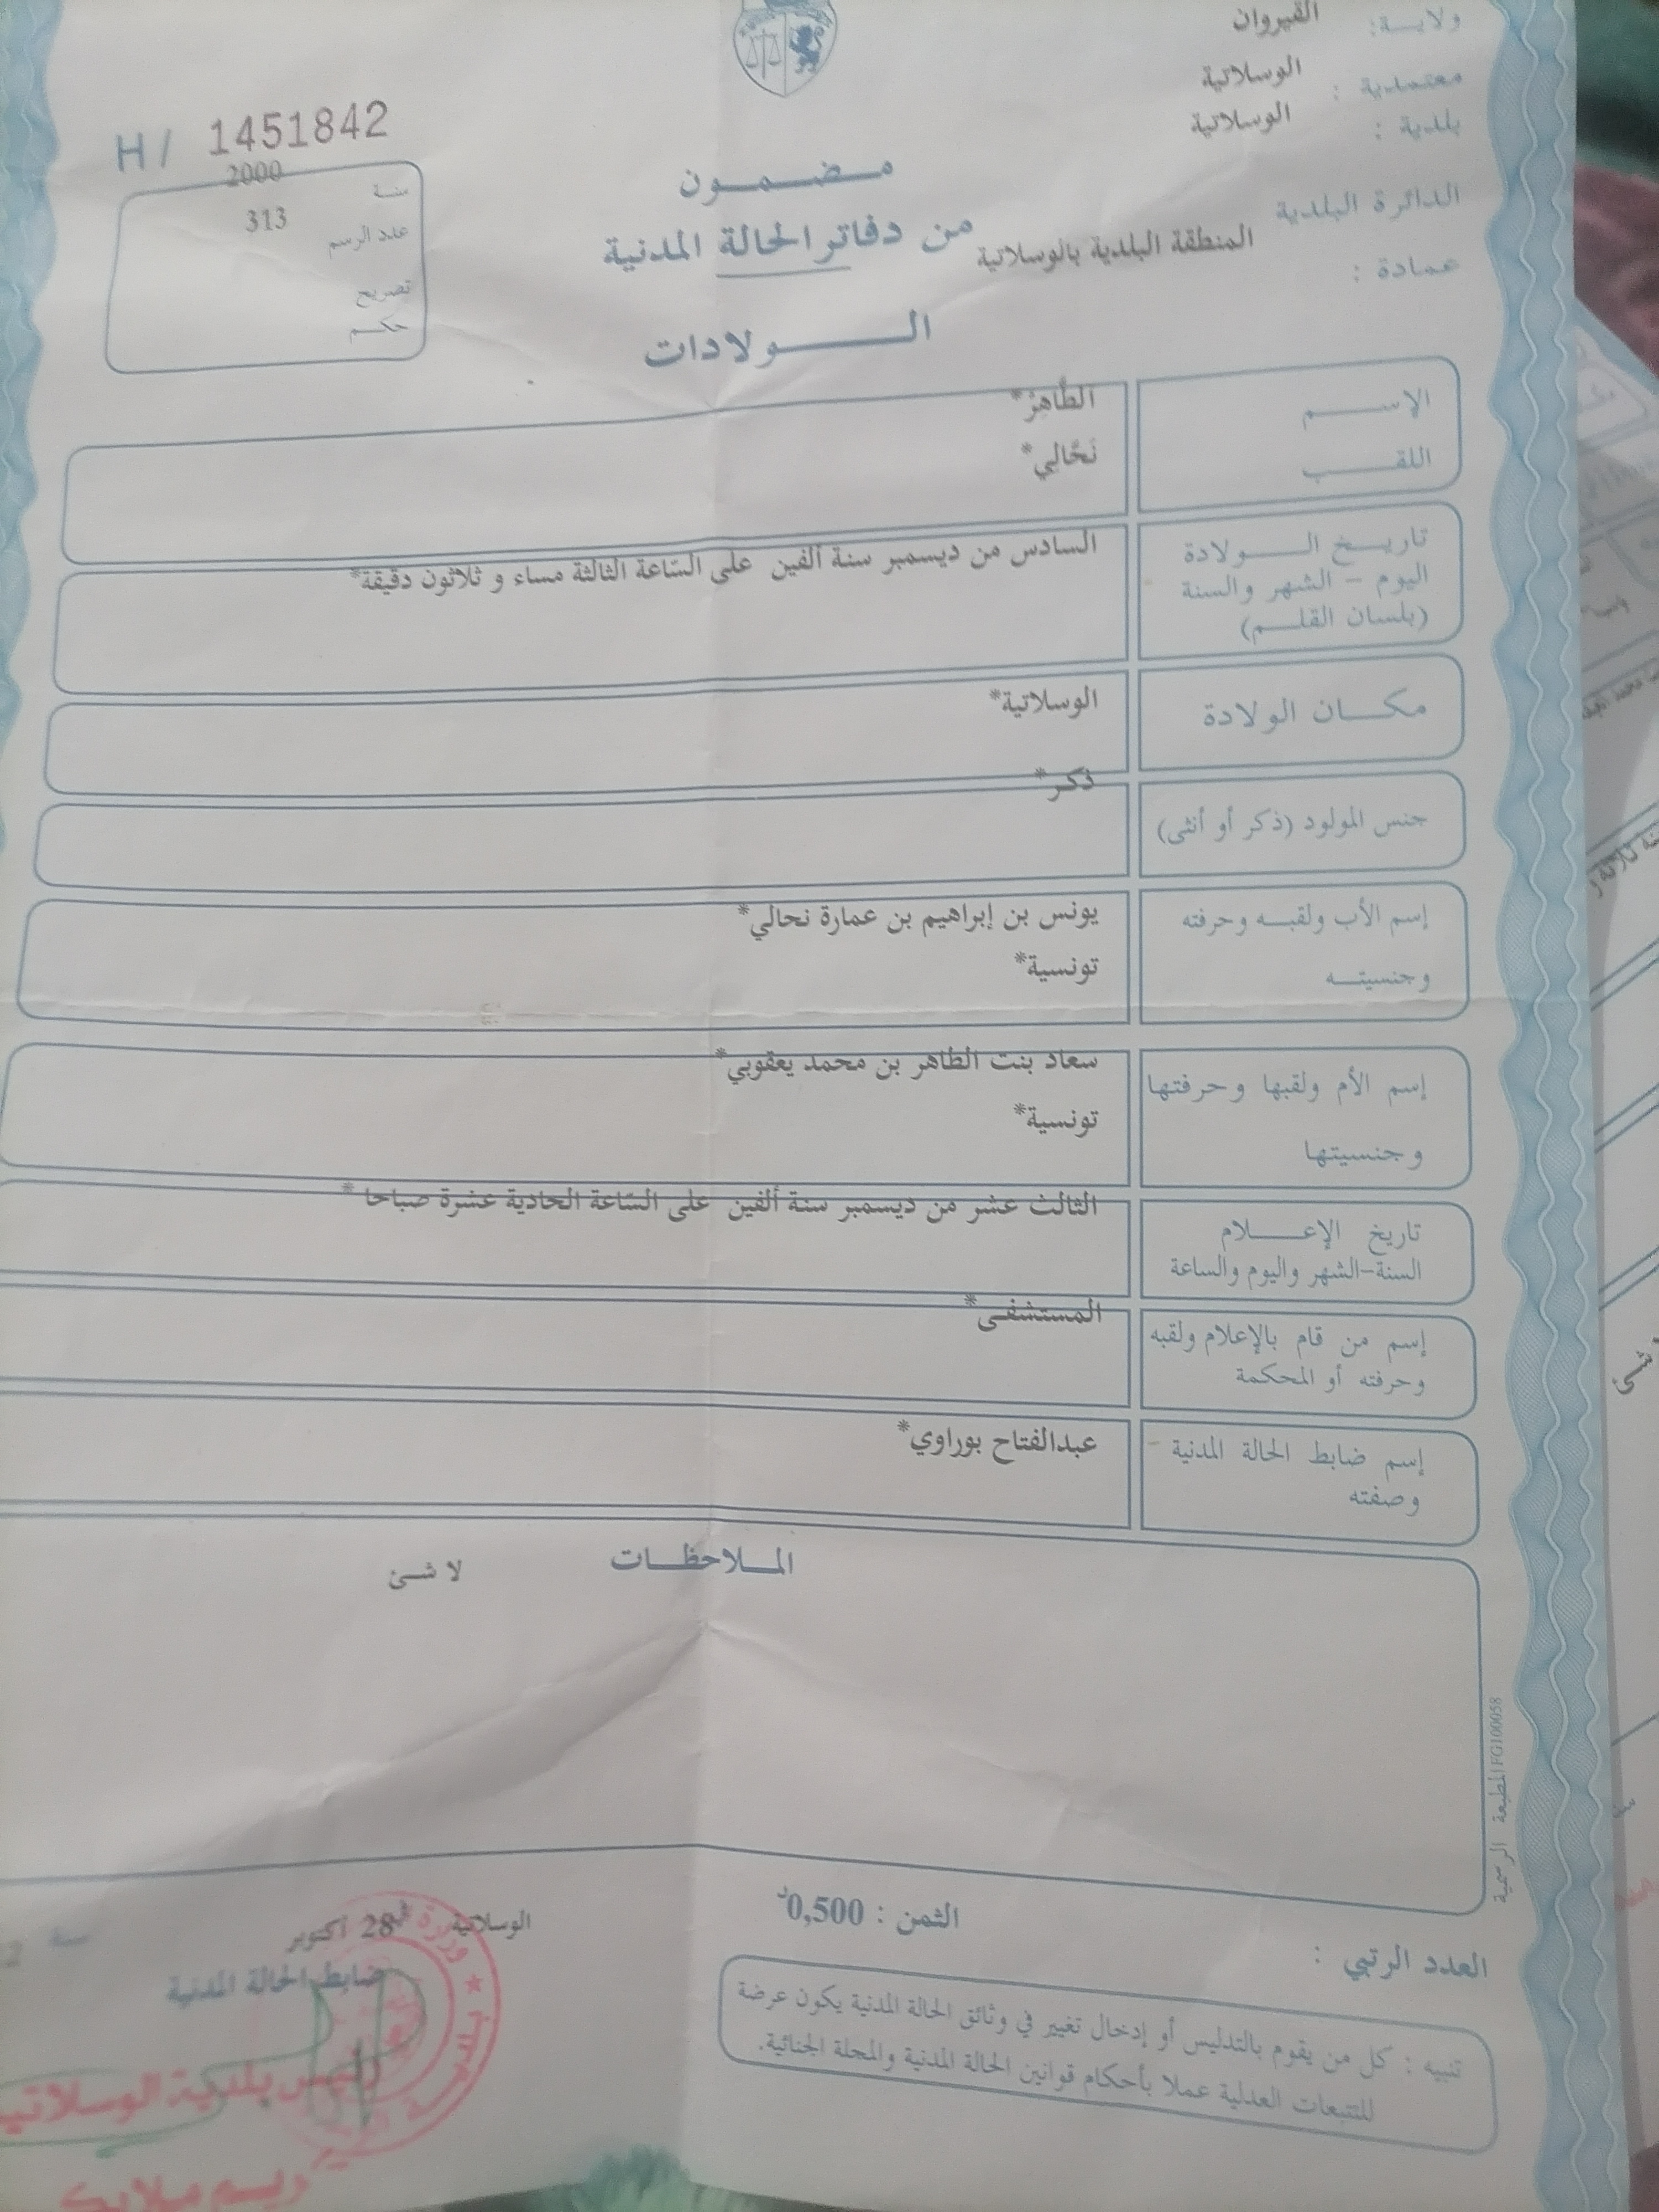 ولايـــة: القيروان
معتمدية : الوسلاتية
بلدية : الوسلاتية
الدائرة البلدية
المنطقة البلدية بالوسلاتية
عمادة :
H / 1451842
سنة 2000
عدد الرسم 313
تصريح
حكم
مضمون
من دفاتر الحالة المدنية
الولادات
الإسم الطّاهرْ*
اللقب نَحّالي*
تاريخ الولادة السادس من ديسمبر سنة ألفين على السّاعة الثالثة مساء و ثلاثون دقيقة*
اليوم - الشهر والسنة
(بلسان القلم)
مكان الولادة الوسلاتية*
جنس المولود (ذكر أو أنثى) ذكر*
إسم الأب ولقبه وحرفته يونس بن إبراهيم بن عمارة نحالي*
وجنسيته تونسية*
إسم الأم ولقبها وحرفتها سعاد بنت الطاهر بن محمد يعقوبي*
وجنسيتها تونسية*
تاريخ الإعلام الثالث عشر من ديسمبر سنة ألفين على السّاعة الحادية عشرة صباحا *
السنة-الشهر واليوم والساعة
إسم من قام بالإعلام ولقبه المستشفى*
وحرفته أو المحكمة
إسم ضابط الحالة المدنية عبدالفتاح بوراوي*
وصفته
الملاحظات
لا شئ
المطبعة الرسمية FG100058
الثمن : 0,500د
العدد الرتبي :
تنبيه : كل من يقوم بالتدليس أو إدخال تغيير في وثائق الحالة المدنية يكون عرضة
للتتبعات العدلية عملا بأحكام قوانين الحالة المدنية والمجلة الجنائية.
الوسلاتية 28 أكتوبر سنة
ضابط الحالة المدنية
رئيس بلدية الوسلاتية